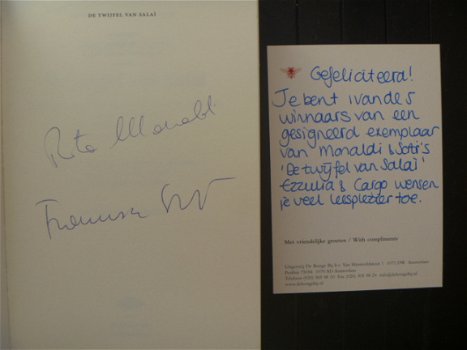 DE TWIJFEL VAN SALAÏ
Rita Monaldi
Francesco Sorti
Gefeliciteerd!
Je bent 1 van de 5
winnaars van een
gesigneerd exemplaar
van Monaldi & Sorti's
'De twijfel van Salaï'
Ezzulia & Cargo wensen
je veel leesplezier toe.
Met vriendelijke groeten / With compliments
Uitgeverij De Bezige Bij b.v. Van Miereveldstraat 1
Amsterdam
Telefoon
www.debezigebij.nl